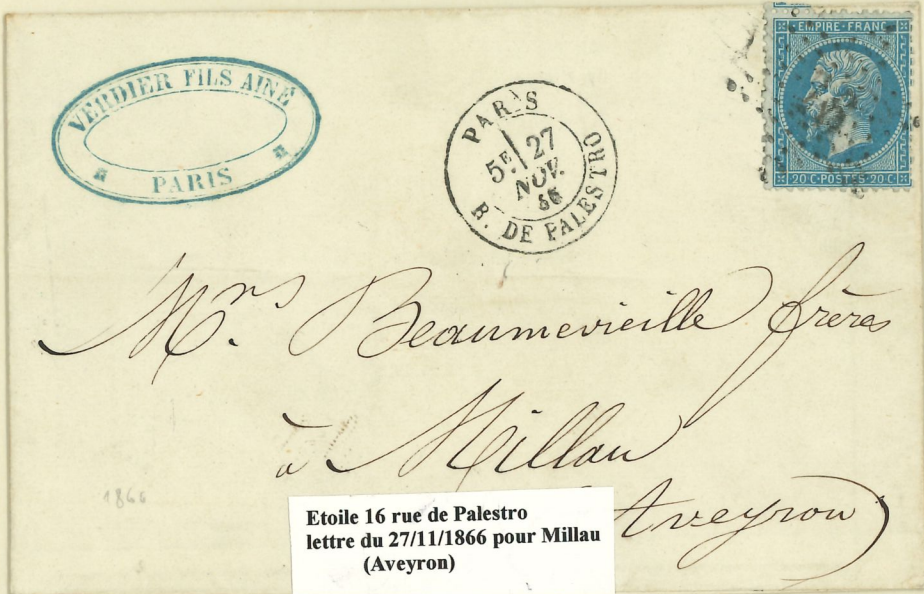 VERDIER FILS AINÉ
PARIS
PARIS
5E 27
NOV.
66
R. DE PALESTRO
EMPIRE FRANC
20 C·POSTES·20 C
Mrs. Beaumevieille frères
à Millau
Aveyron
1866
Etoile 16 rue de Palestro
lettre du 27/11/1866 pour Millau
(Aveyron)